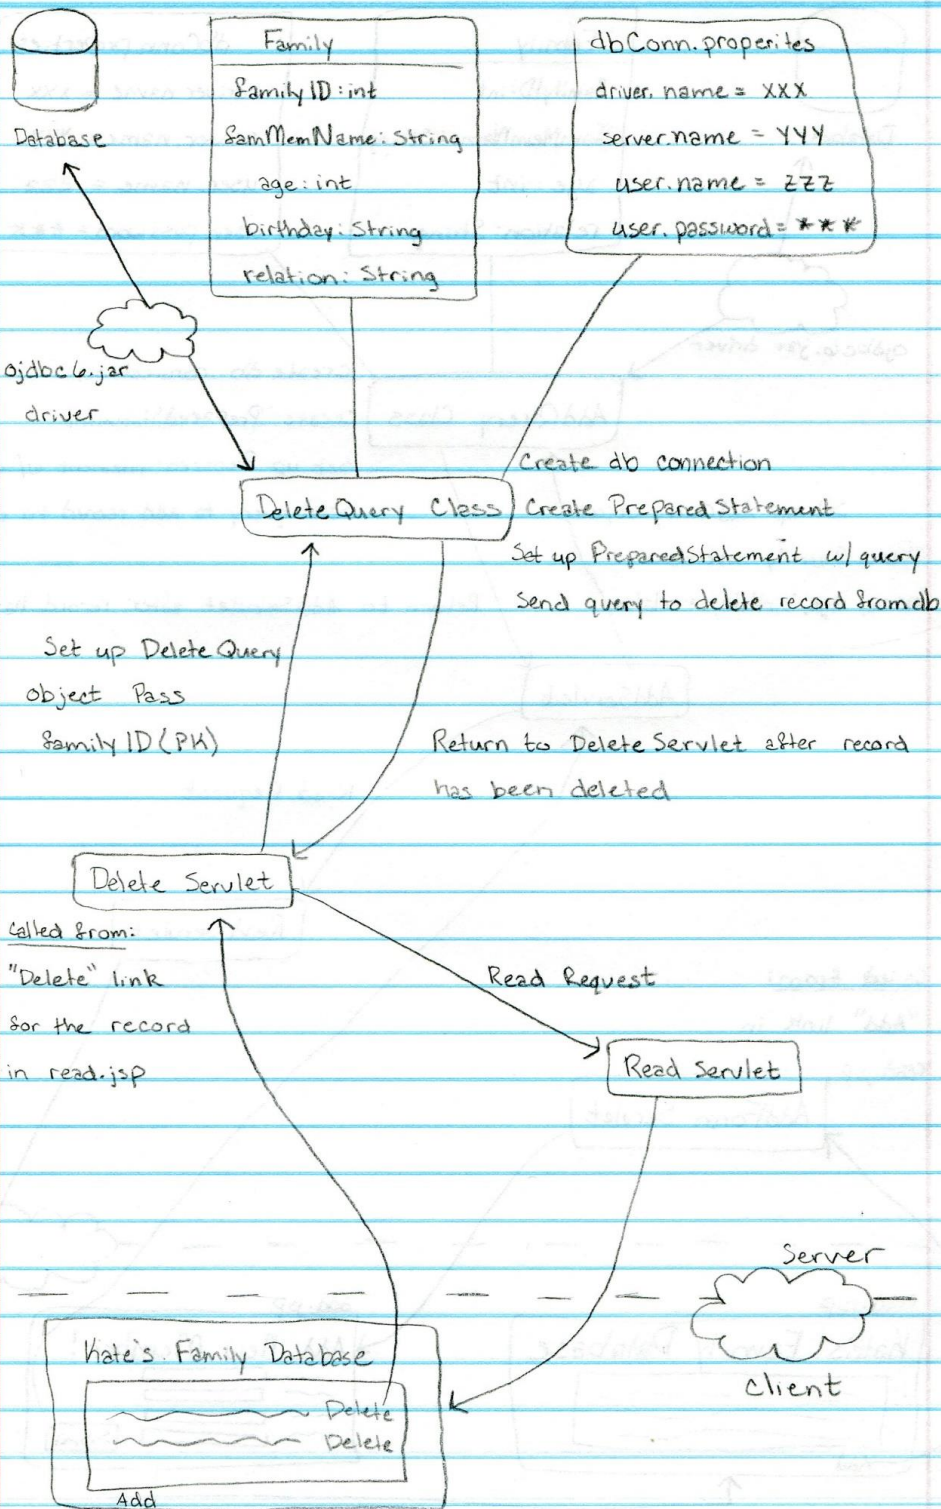 Database
Family
familyID: int
famMemName: String
age: int
birthday: String
relation: String
dbConn.properites
driver.name = XXX
server.name = YYY
user.name = ZZZ
user.password = ***
ojdbc6.jar
driver
Delete Query Class
Create db connection
Create Prepared Statement
Set up PreparedStatement w/ query
Send query to delete record from db
Set up Delete Query
object Pass
family ID (PK)
Return to Delete Servlet after record
has been deleted
Delete Servlet
Called from:
"Delete" link
for the record
in read.jsp
Read Request
Read Servlet
Server
Client
Kate's Family Database
Delete
Delete
Add